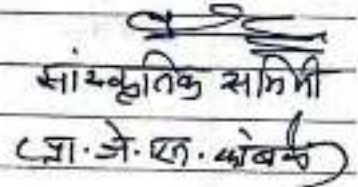 सांस्कृतिक समिती
प्रा. जे. एन. कांबळे